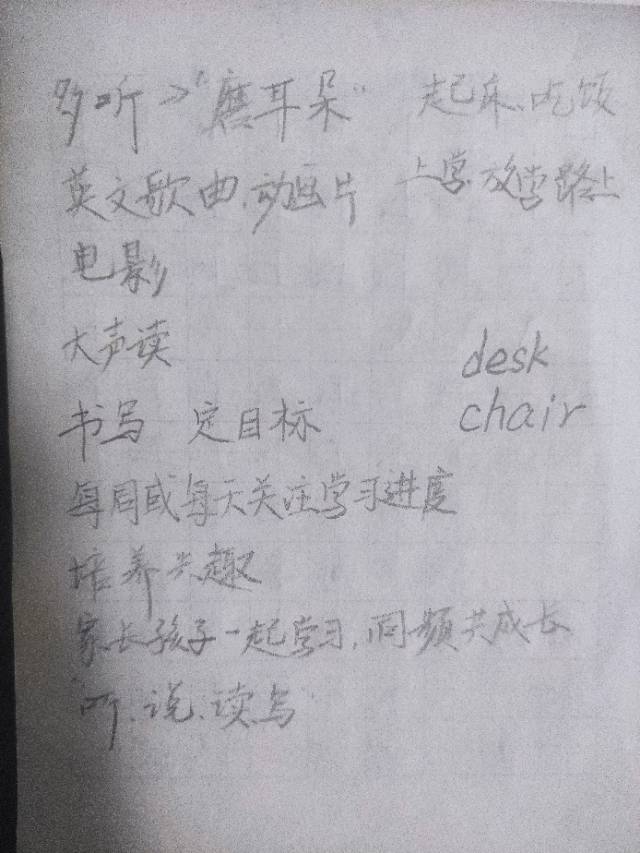 多听>"磨耳朵" 起床、吃饭
英文歌曲、动画片 上学、放学路上
电影
大声读
desk
书写 定目标
chair
每周或每天关注学习进度
培养兴趣
家长孩子一起学习,同频共成长
"听、说、读、写"